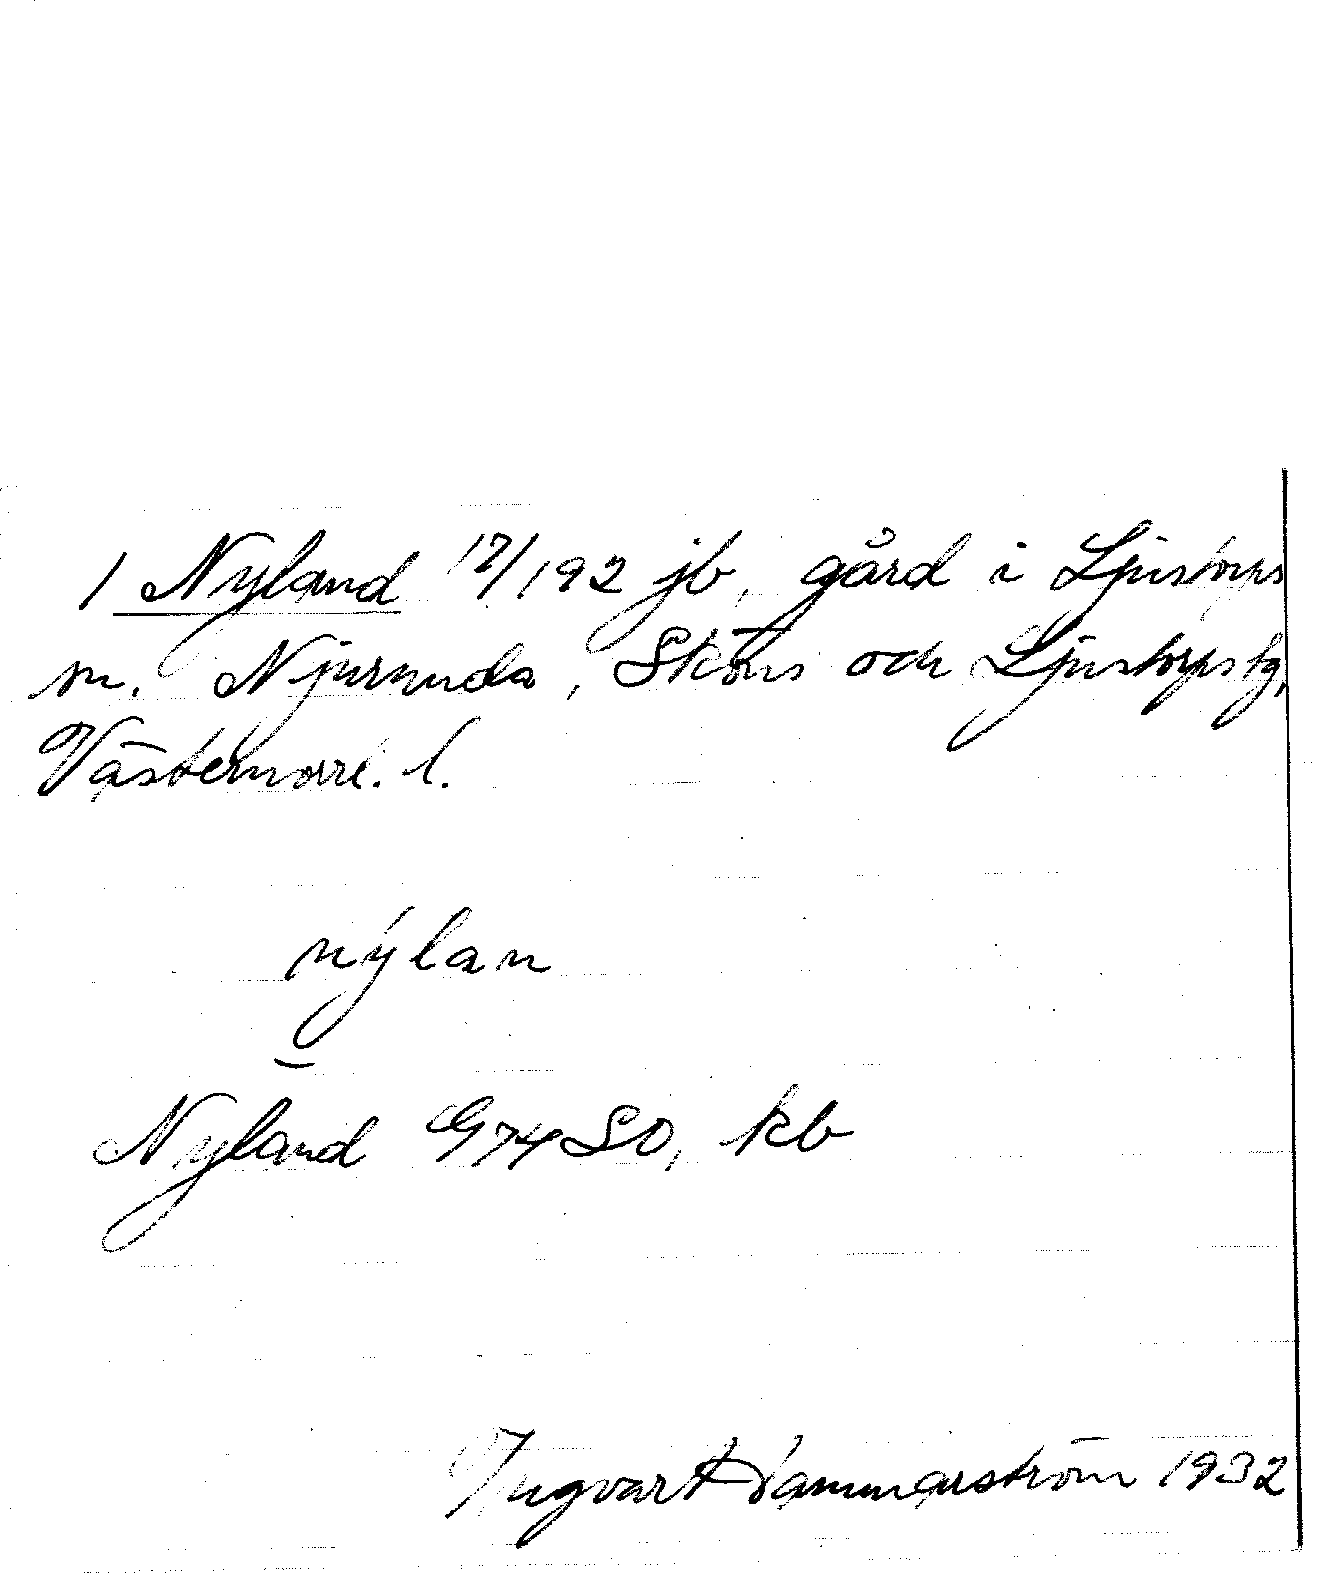 1 Nyland 17/192 jb, gård i Ljustorps
sn. Njurunda, Sköns och Ljustorps tg,
Västernorrl. l.
nýlan
Nyland G74SO, kb
Ingvar Hammarström 1932